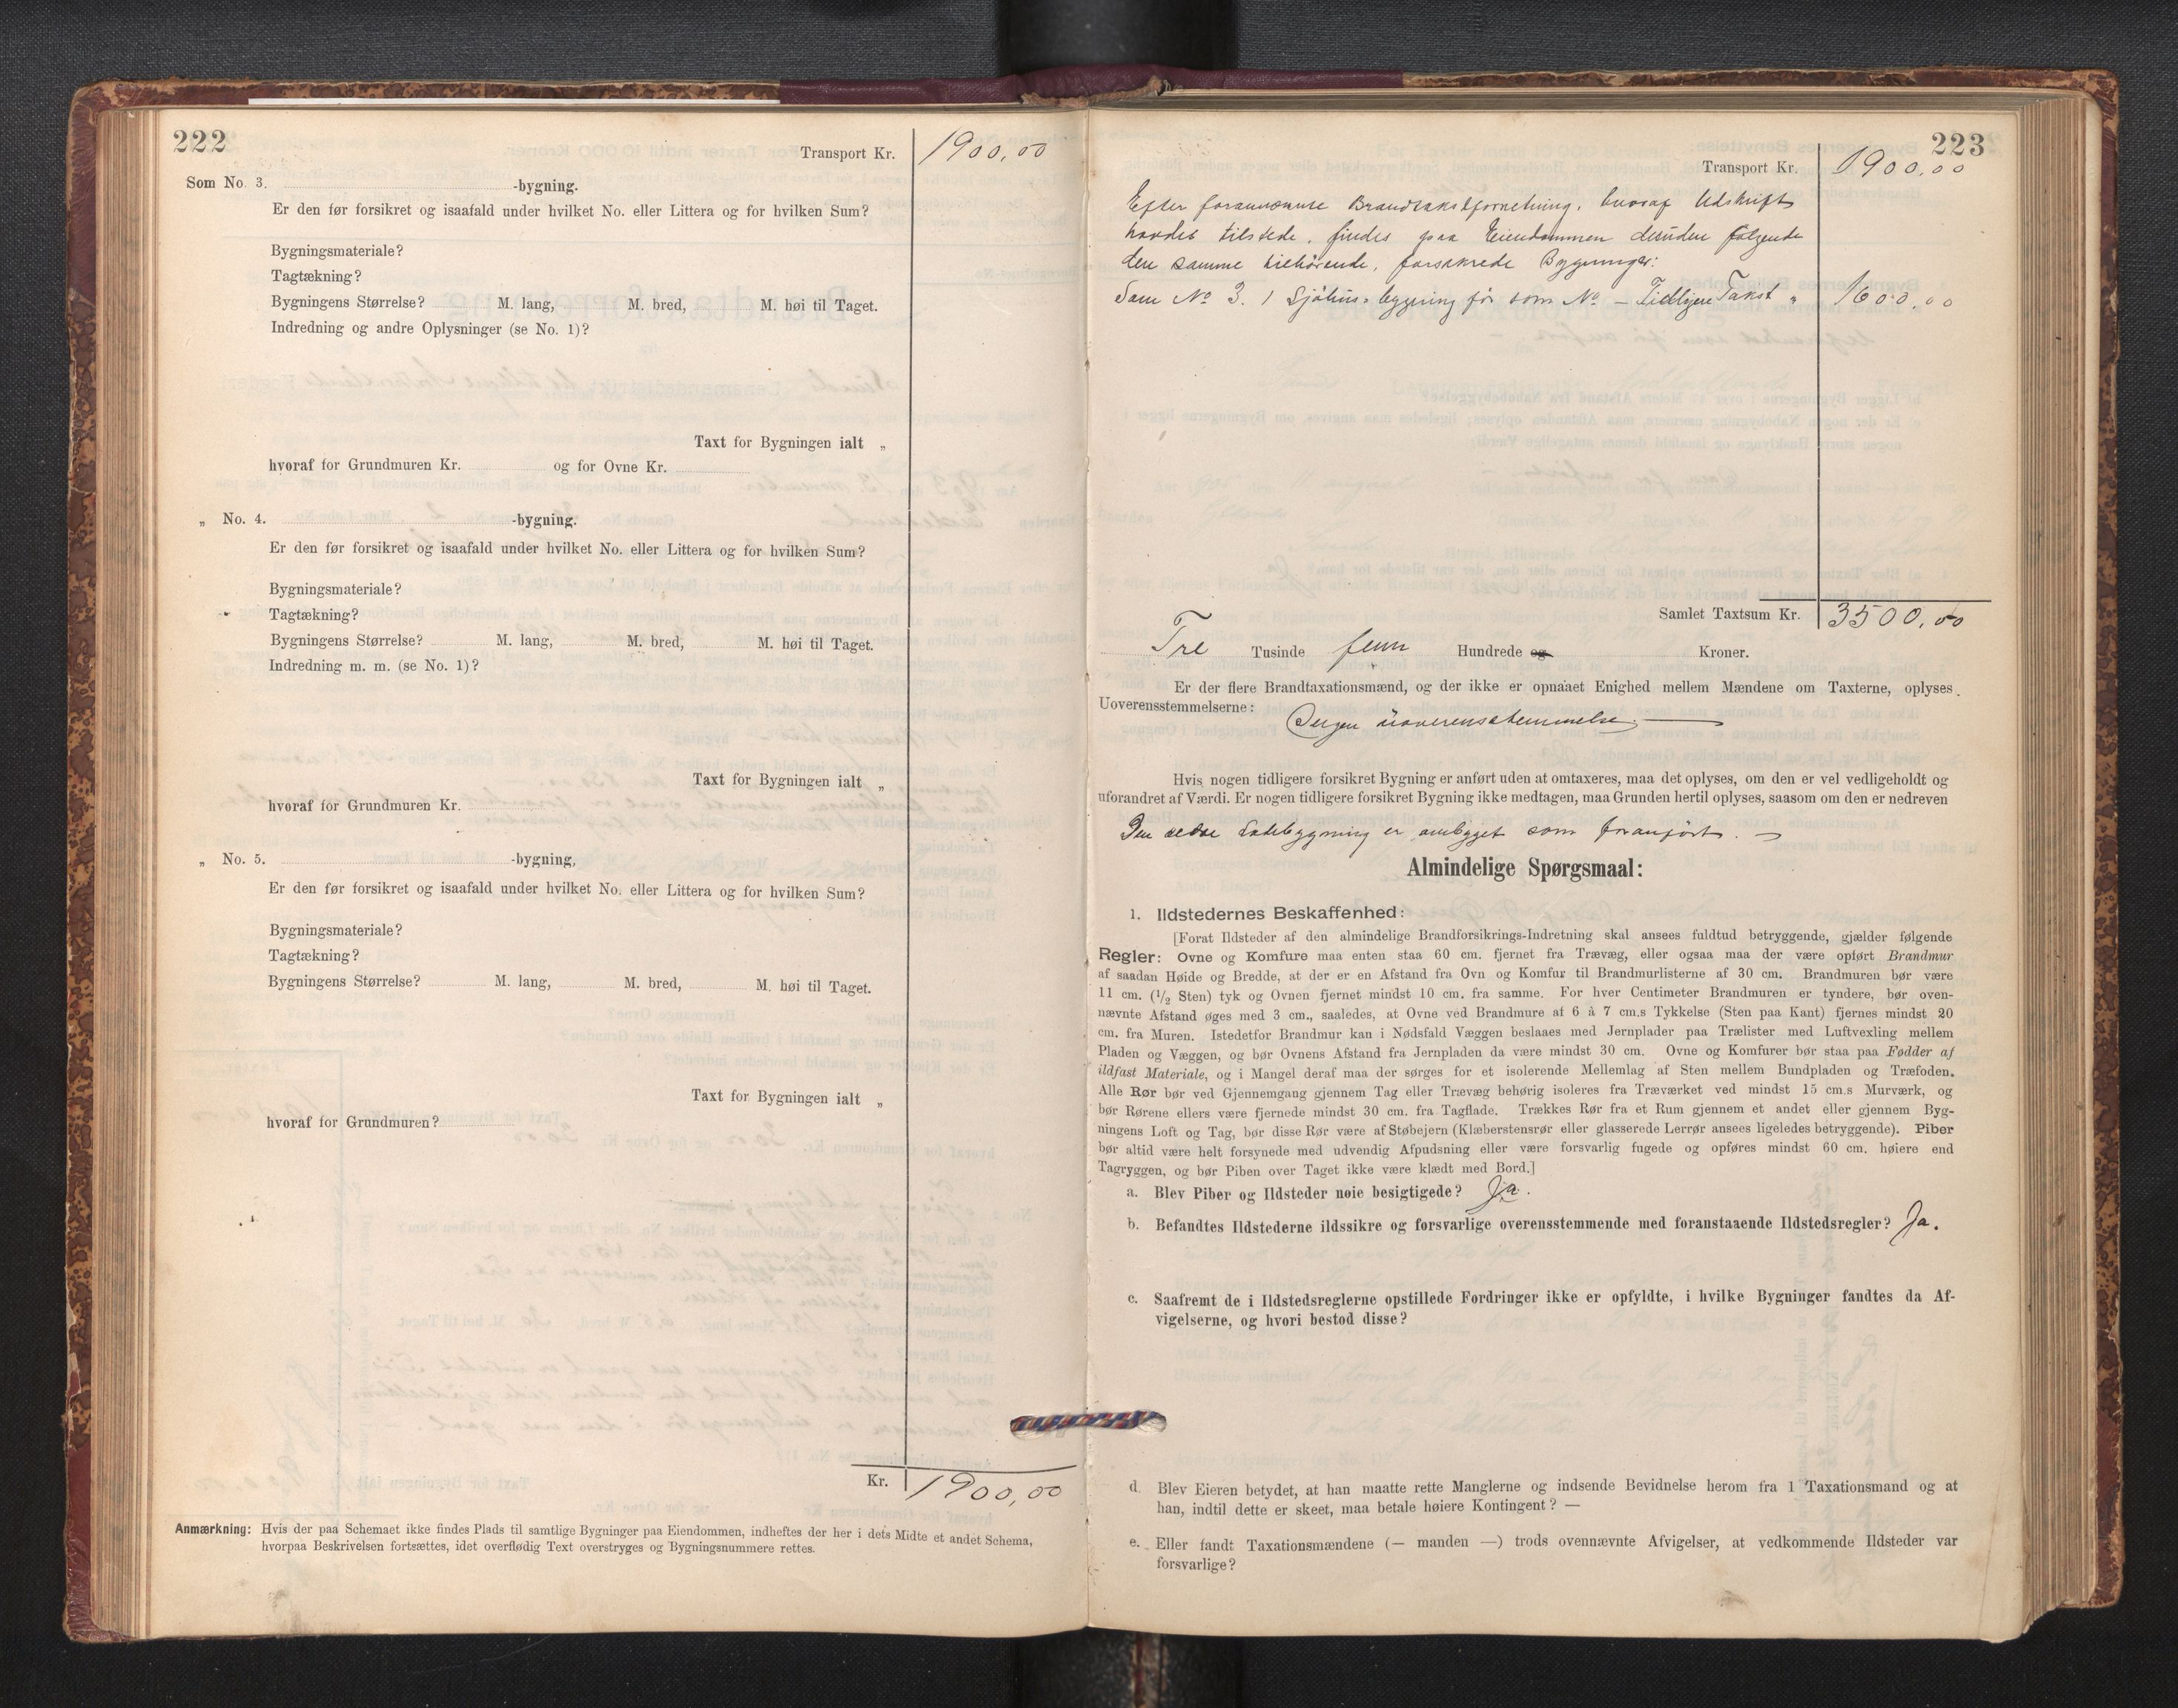 222
Transport Kr. 1900,00
Som No. 3. -bygning.
Er den før forsikret og isaafald under hvilket No. eller Littera og for hvilken Sum?
Bygningsmateriale?
Tagtækning?
Bygningens Størrelse? M. lang, M. bred, M. høi til Taget.
Indredning og andre Oplysninger (se No. 1)?
Taxt for Bygningen ialt „
hvoraf for Grundmuren Kr. og for Ovne Kr.
„ No. 4. -bygning.
Er den før forsikret og isaafald under hvilket No. eller Littera og for hvilken Sum?
Bygningsmateriale?
Tagtækning?
Bygningens Størrelse? M. lang, M. bred, M. høi til Taget.
Indredning m. m. (se No. 1)?
Taxt for Bygningen ialt „
hvoraf for Grundmuren Kr.
„ No. 5. -bygning,
Er den før forsikret og isaafald under hvilket No. eller Littera og for hvilken Sum?
Bygningsmateriale?
Tagtækning?
Bygningens Størrelse? M. lang, M. bred, M. høi til Taget.
Taxt for Bygningen ialt „
hvoraf for Grundmuren?
Kr. 1900,00
Anmærkning: Hvis der paa Schemaet ikke findes Plads til samtlige Bygninger paa Eiendommen, indheftes der her i dets Midte et andet Schema,
hvorpaa Beskrivelsen fortsættes, idet overflødig Text overstryges og Bygningsnummere rettes.
223
Transport Kr. 1900,00
Efter forannævnte Brandtakstforretning, hvoraf Udskrift
havdes tilstede, findes paa Eiendommen desuden følgende
den samme tilhørende, forsikrede Bygninger:
Som No 3. 1 Sjøhus-bygning før som No — Tidligere Takst „ 1600,00
Samlet Taxtsum Kr. 3500,00
Tre Tusinde fem Hundrede og Kroner.
Er der flere Brandtaxationsmænd, og der ikke er opnaaet Enighed mellem Mændene om Taxterne, oplyses
Uoverensstemmelserne: Ingen uoverensstemmelse. —
Hvis nogen tidligere forsikret Bygning er anført uden at omtaxeres, maa det oplyses, om den er vel vedligeholdt og
uforandret af Værdi. Er nogen tidligere forsikret Bygning ikke medtagen, maa Grunden hertil oplyses, saasom om den er nedreven
Den ældre Ladebygning er ombygget som foranført. —
Almindelige Spørgsmaal:
1. Ildstedernes Beskaffenhed:
[Forat Ildsteder af den almindelige Brandforsikrings-Indretning skal ansees fuldtud betryggende, gjælder følgende
Regler: Ovne og Komfure maa enten staa 60 cm. fjernet fra Trævæg, eller ogsaa maa der være opført Brandmur
af saadan Høide og Bredde, at der er en Afstand fra Ovn og Komfur til Brandmurlisterne af 30 cm. Brandmuren bør være
11 cm. (1/2 Sten) tyk og Ovnen fjernet mindst 10 cm. fra samme. For hver Centimeter Brandmuren er tyndere, bør oven-
nævnte Afstand øges med 3 cm., saaledes, at Ovne ved Brandmure af 6 à 7 cm.s Tykkelse (Sten paa Kant) fjernes mindst 20
cm. fra Muren. Istedetfor Brandmur kan i Nødsfald Væggen beslaaes med Jernplader paa Trælister med Luftvexling mellem
Pladen og Væggen, og bør Ovnens Afstand fra Jernpladen da være mindst 30 cm. Ovne og Komfurer bør staa paa Fødder af
ildfast Materiale, og i Mangel deraf maa der sørges for et isolerende Mellemlag af Sten mellem Bundpladen og Træfoden.
Alle Rør bør ved Gjennemgang gjennem Tag eller Trævæg behørig isoleres fra Træværket ved mindst 15 cm.s Murværk, og
bør Rørene ellers være fjernede mindst 30 cm. fra Tagflade. Trækkes Rør fra et Rum gjennem et andet eller gjennem Byg-
ningens Loft og Tag, bør disse Rør være af Støbejern (Klæberstensrør eller glasserede Lerrør ansees ligeledes betryggende). Piber
bør altid være helt forsynede med udvendig Afpudsning eller være forsvarlig fugede og opføres mindst 60 cm. høiere end
Tagryggen, og bør Piben over Taget ikke være klædt med Bord.]
a. Blev Piber og Ildsteder nøie besigtigede? Ja.
b. Befandtes Ildstederne ildssikre og forsvarlige overensstemmende med foranstaaende Ildstedsregler? Ja.
c. Saafremt de i Ildstedsreglerne opstillede Fordringer ikke er opfyldte, i hvilke Bygninger fandtes da Af-
vigelserne, og hvori bestod disse?
d. Blev Eieren betydet, at han maatte rette Manglerne og indsende Bevidnelse herom fra 1 Taxationsmand og at
han, indtil dette er skeet, maa betale høiere Kontingent? —
e. Eller fandt Taxationsmændene (— manden —) trods ovennævnte Afvigelser, at vedkommende Ildsteder var
forsvarlige?